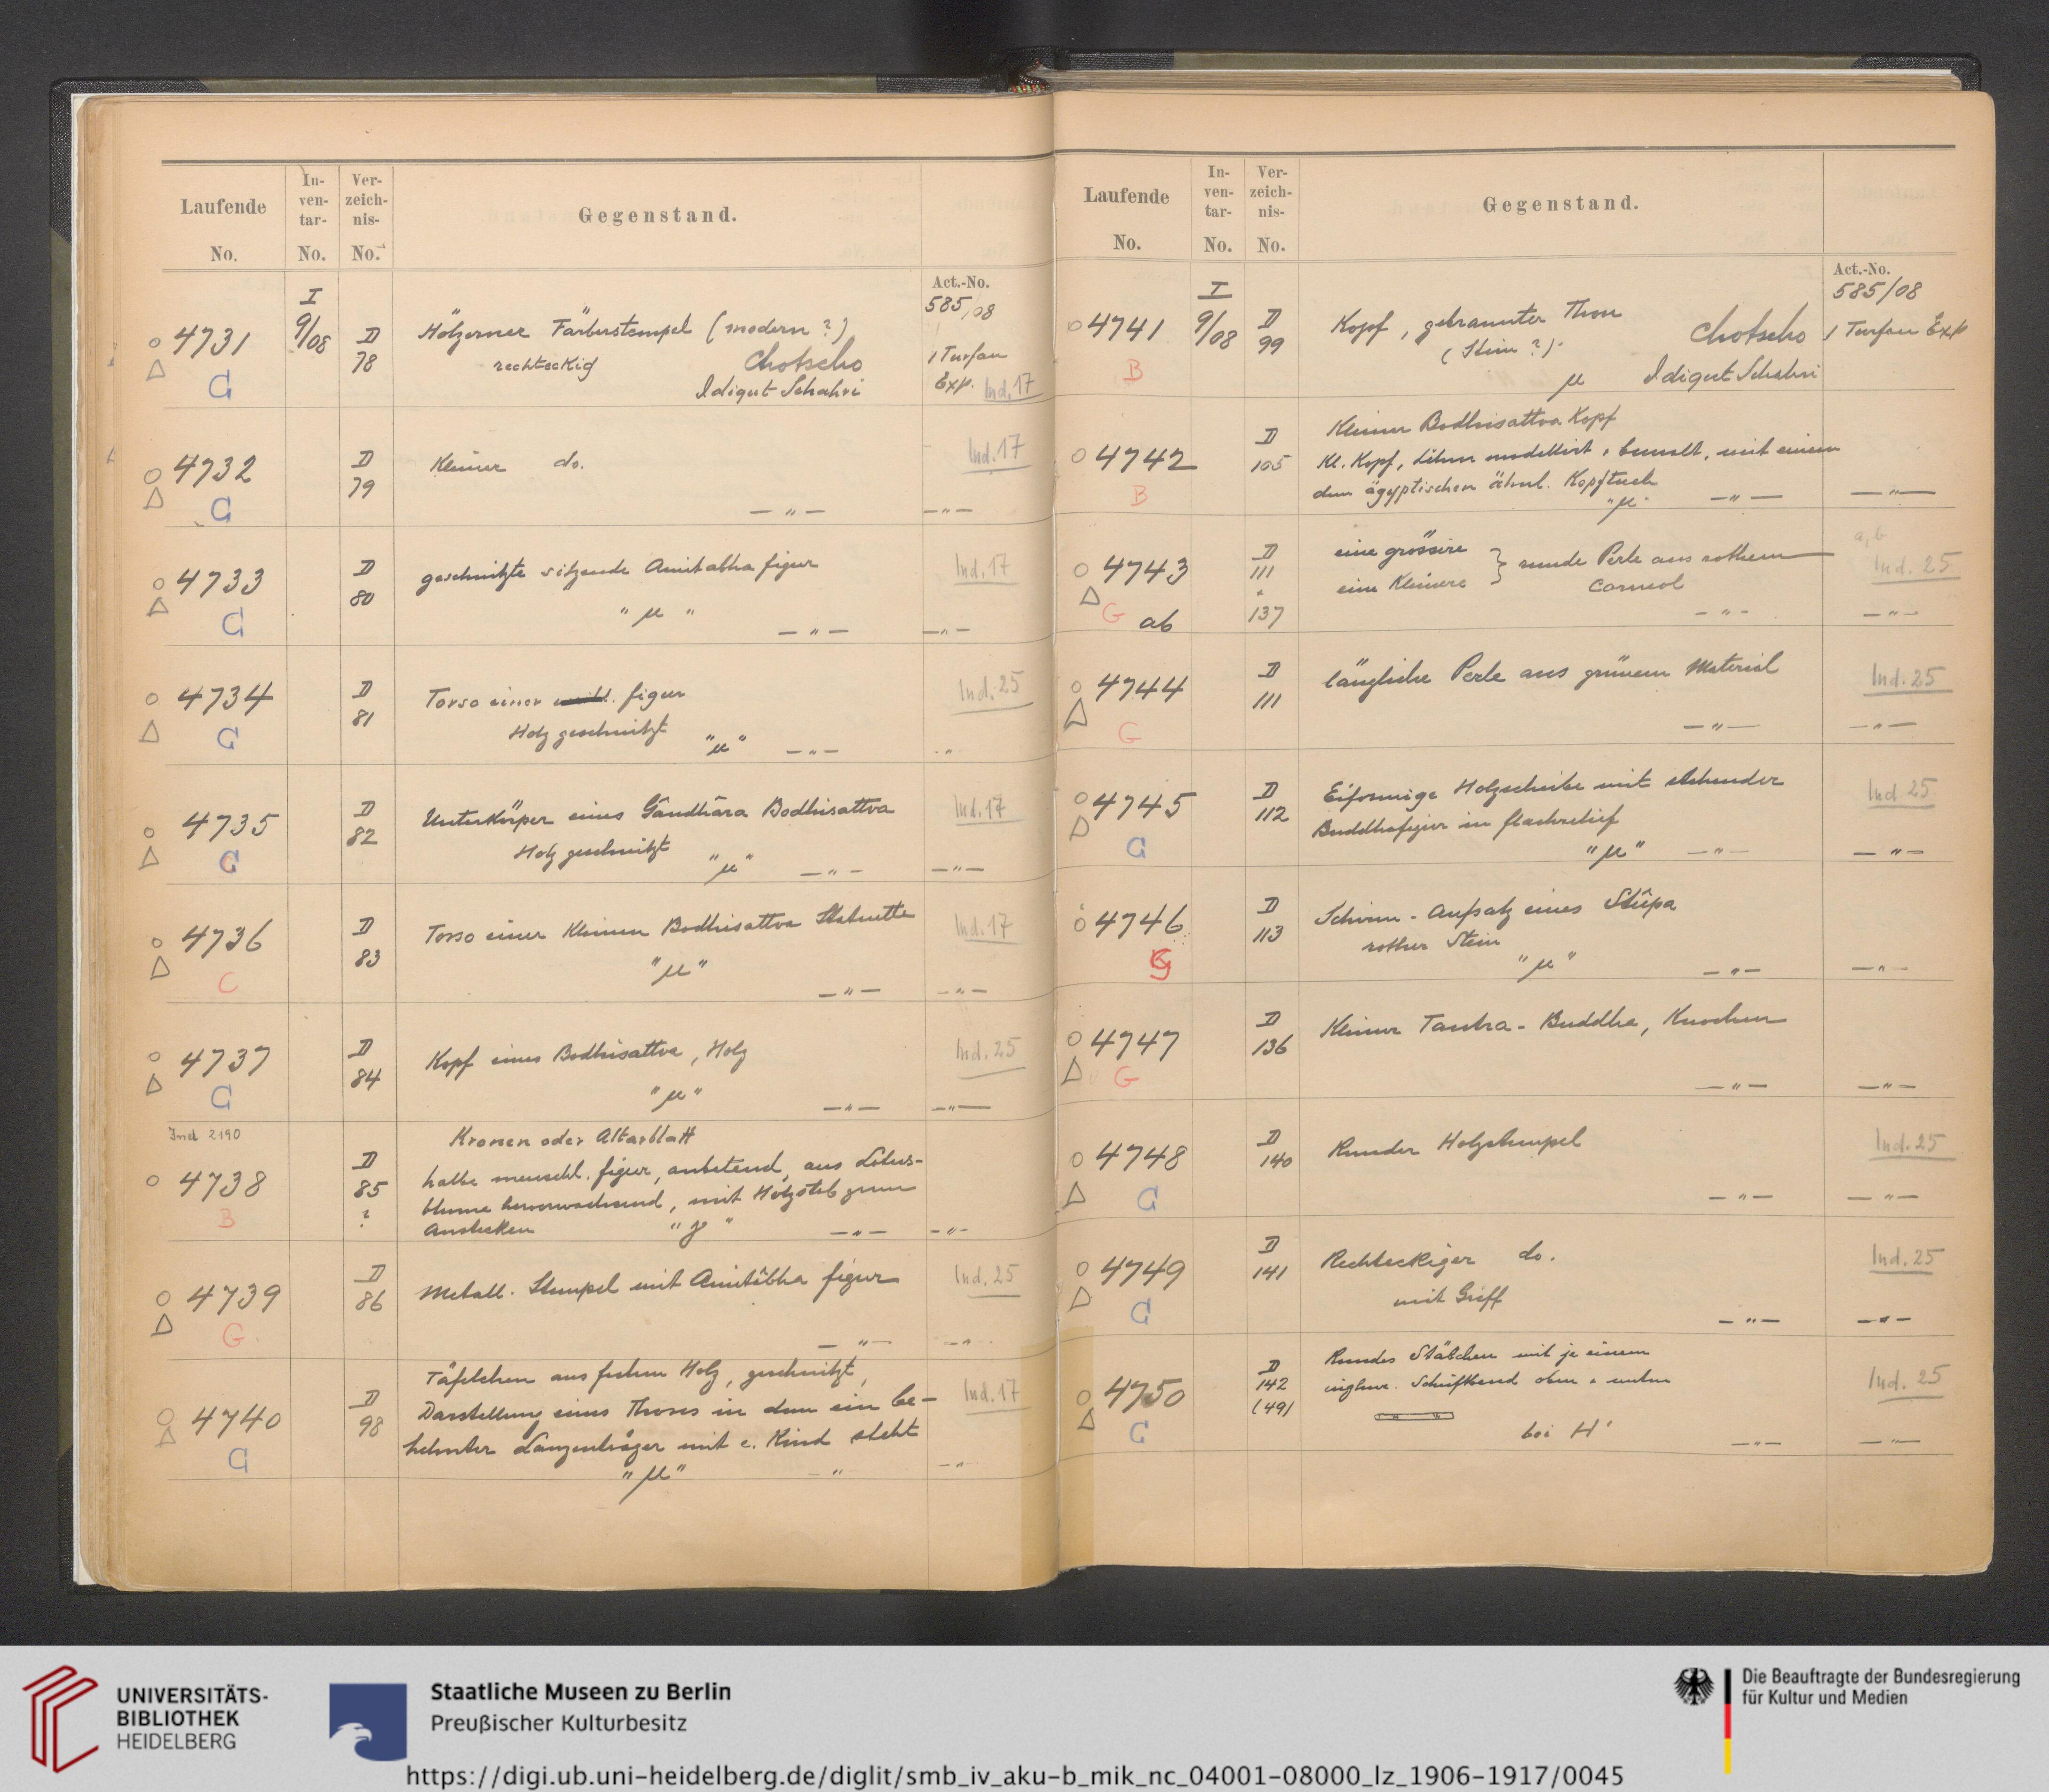 Laufende No.
In-ven-tar-No.
Ver-zeich-nis-No.
Gegenstand.
Act.-No.
585/08
4731
G
I 9/08
D 78
Hölzerner Färberstempel (modern?)
rechteckig Chotscho
Idigut Schahri
1 Turfan
Exp. Ind. 17
4732
G
D 79
Kleiner do.
— " —
Ind. 17
— " —
4733
G
D 80
geschnitzte sitzende Amitabha figur
" µ " — " —
Ind. 17
— " —
4734
G
D 81
Torso einer figur
Holz geschnitzt " µ " — " —
Ind. 25
"
4735
G
D 82
Unterkörper eines Gândhâra Bodhisattva
Holz geschnitzt " µ " — " —
Ind. 17
— " —
4736
C
D 83
Torso einer kleinen Bodhisattva Statuette
" µ "
— " —
Ind. 17
— " —
4737
G
D 84
Kopf eines Bodhisattva, Holz
" µ " — " —
Ind. 25
— " —
Ind 2190
4738
B
D 85 ?
Kronen oder Altarblatt
halbe menschl. figur, anbetend, aus Lotus-
blume hervorwachsend, mit Holzstab zum
Anstecken " g " — " —
— " —
4739
G
D 86
Metall. Stempel mit Amitâbha figur
— " —
Ind. 25
— " —
4740
G
D 98
Täfelchen aus festem Holz, geschnitzt,
Darstellung eines Thores in dem ein be-
helmter Lanzenträger mit e. Kind steht
" µ " — "
Ind. 17
— "
Laufende No.
In-ven-tar-No.
Ver-zeich-nis-No.
Gegenstand.
Act.-No.
585/08
4741
B
I 9/08
D 99
Kopf, gebrannter Thon
(Stein?) Chotscho
µ Idigut Schahri
1 Turfan Exp
4742
B
D 105
Kleiner Bodhisattva Kopf
Kl. Kopf, Lehm modellirt, bemalt, mit einem
dem ägyptischen ähnl. Kopftuch
" µ " — " —
— " —
4743
G ab
D 111
137
eine grössere } runde Perle aus rothem
eine kleinere } Carneol
— " —
a, b
Ind. 25
— " —
4744
G
D 111
längliche Perle aus grünem Material
— " —
Ind. 25
— " —
4745
G
D 112
Eiförmige Holzscheibe mit stehender
Buddhafigur in flachrelief
" µ " — " —
Ind 25
— " —
4746
G
D 113
Schirm-Aufsatz eines Stûpa
rother Stein
" µ " — " —
— " —
4747
G
D 136
Kleiner Tantra-Buddha, Knochen
— " —
— " —
4748
G
D 140
Runder Holzstempel
— " —
Ind. 25
— " —
4749
G
D 141
Rechteckiger do.
mit Griff
— " —
Ind. 25
— " —
4750
G
D 142
(49)
Rundes Stäbchen mit je einem
Schriftband oben u. unten
bei H' — " —
Ind. 25
— " —
UNIVERSITÄTS-
BIBLIOTHEK
HEIDELBERG
Staatliche Museen zu Berlin
Preußischer Kulturbesitz
Die Beauftragte der Bundesregierung
für Kultur und Medien
https://digi.ub.uni-heidelberg.de/diglit/smb_iv_aku-b_mik_nc_04001-08000_lz_1906-1917/0045